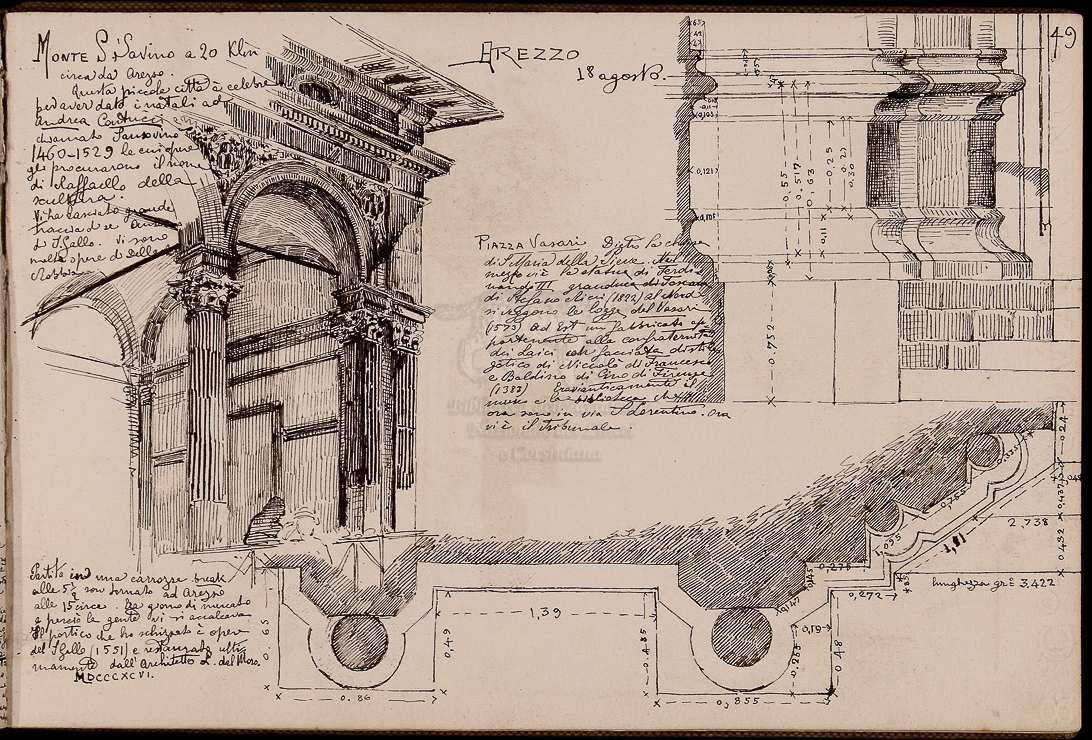 MONTE S. Savino a 20 Klm
circa da Arezzo.
Questa piccola città è celebre
per aver dato i natali ad
Andrea Contucci
chiamato Sansovino
1460-1529 le cui opere
gli procurarono il nome
di Raffaello della
scultura.
Vi ha lasciato grande
traccia di se
di S. Gallo. Vi sono
molte opere di Della
Robbia
AREZZO
18 agosto.
49
PIAZZA Vasari Dietro la chiesa
di S. Maria della Pieve. Nel
mezzo vi è la statua di Ferdi-
nando III granduca di Toscana
di Stefano Ricci (1822) al Nord
si veggono le logge del Vasari
(1573) ad Est un fabbricato ap-
partenente alla confraternita
dei Laici con facciata di stile
gotico di Niccolò di Francesco
e Baldino di Cino di Firenze
(1383) Eravi anticamente il
museo e la biblioteca che
ora sono in via S. Lorentino. Ora
vi è il tribunale.
Partito in una carrozza break
alle 5½ son tornato ad Arezzo
alle 15 circa. Era giorno di mercato
e perciò la gente vi si accalcava.
Il portico che ho schizzato è opera
del S. Gallo (1551) e restaurato ulti-
mamente dall'Architetto G. del Moro.
MDCCCXCVI.
0,121
0,105
0.55
0.517
0.63
0.25
0.27
0.30
0.11
0.752
0.24
0.325
0,265
0.437
0.432
2,738
1,81
1,095
0,275
0,145
0,147
0,272
lunghezza gr= 3.422
0.65
0,49
1,39
0.485
0,19
0.265
0.48
0.86
0,855
e Corsiniana